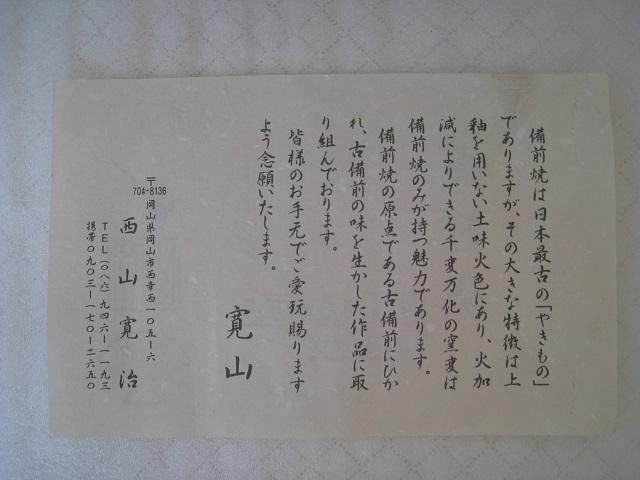 備前焼は日本最古の「やきもの」
でありますが、その大きな特徴は上
釉を用いない土味火色にあり、火加
減によりできる千変万化の窯変は
備前焼のみが持つ魅力であります。
備前焼の原点である古備前にひか
れ、古備前の味を生かした作品に取
り組んでおります。
皆様のお手元でご愛玩賜ります
よう念願いたします。
寛山
〒704-8136
岡山県岡山市西幸西一〇五ー六
西山寛治
TEL(〇八六)九四六ー一一九三
携帯〇九〇三ー一七〇ー二六五〇